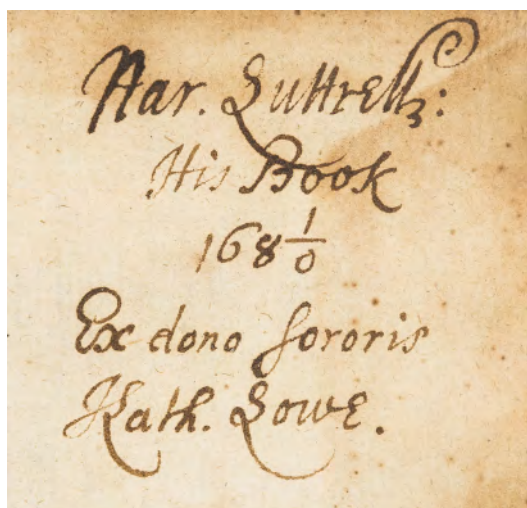 Nar. Luttrell:
His Book
168 1/0
Ex dono sororis
Kath. Lowe.